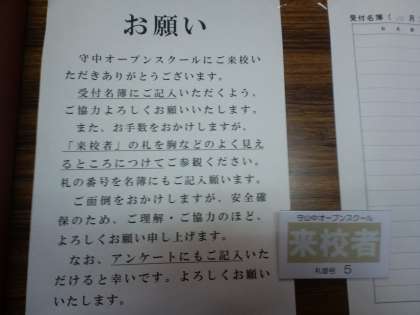 お願い
守中オープンスクールにご来校い
ただきありがとうございます。
受付名簿にご記入いただくよう、
ご協力よろしくお願いいたします。
また、お手数をおかけしますが、
「来校者」の札を胸などのよく見え
るところにつけてご参観ください。
札の番号を名簿にもご記入願います。
ご面倒をおかけしますが、安全確
保のため、ご理解・ご協力のほど、
よろしくお願い申し上げます。
なお、アンケートにもご記入いた
だけると幸いです。よろしくお願い
いたします。
受付名簿(
守山中オープンスクール
来校者
札番号 5